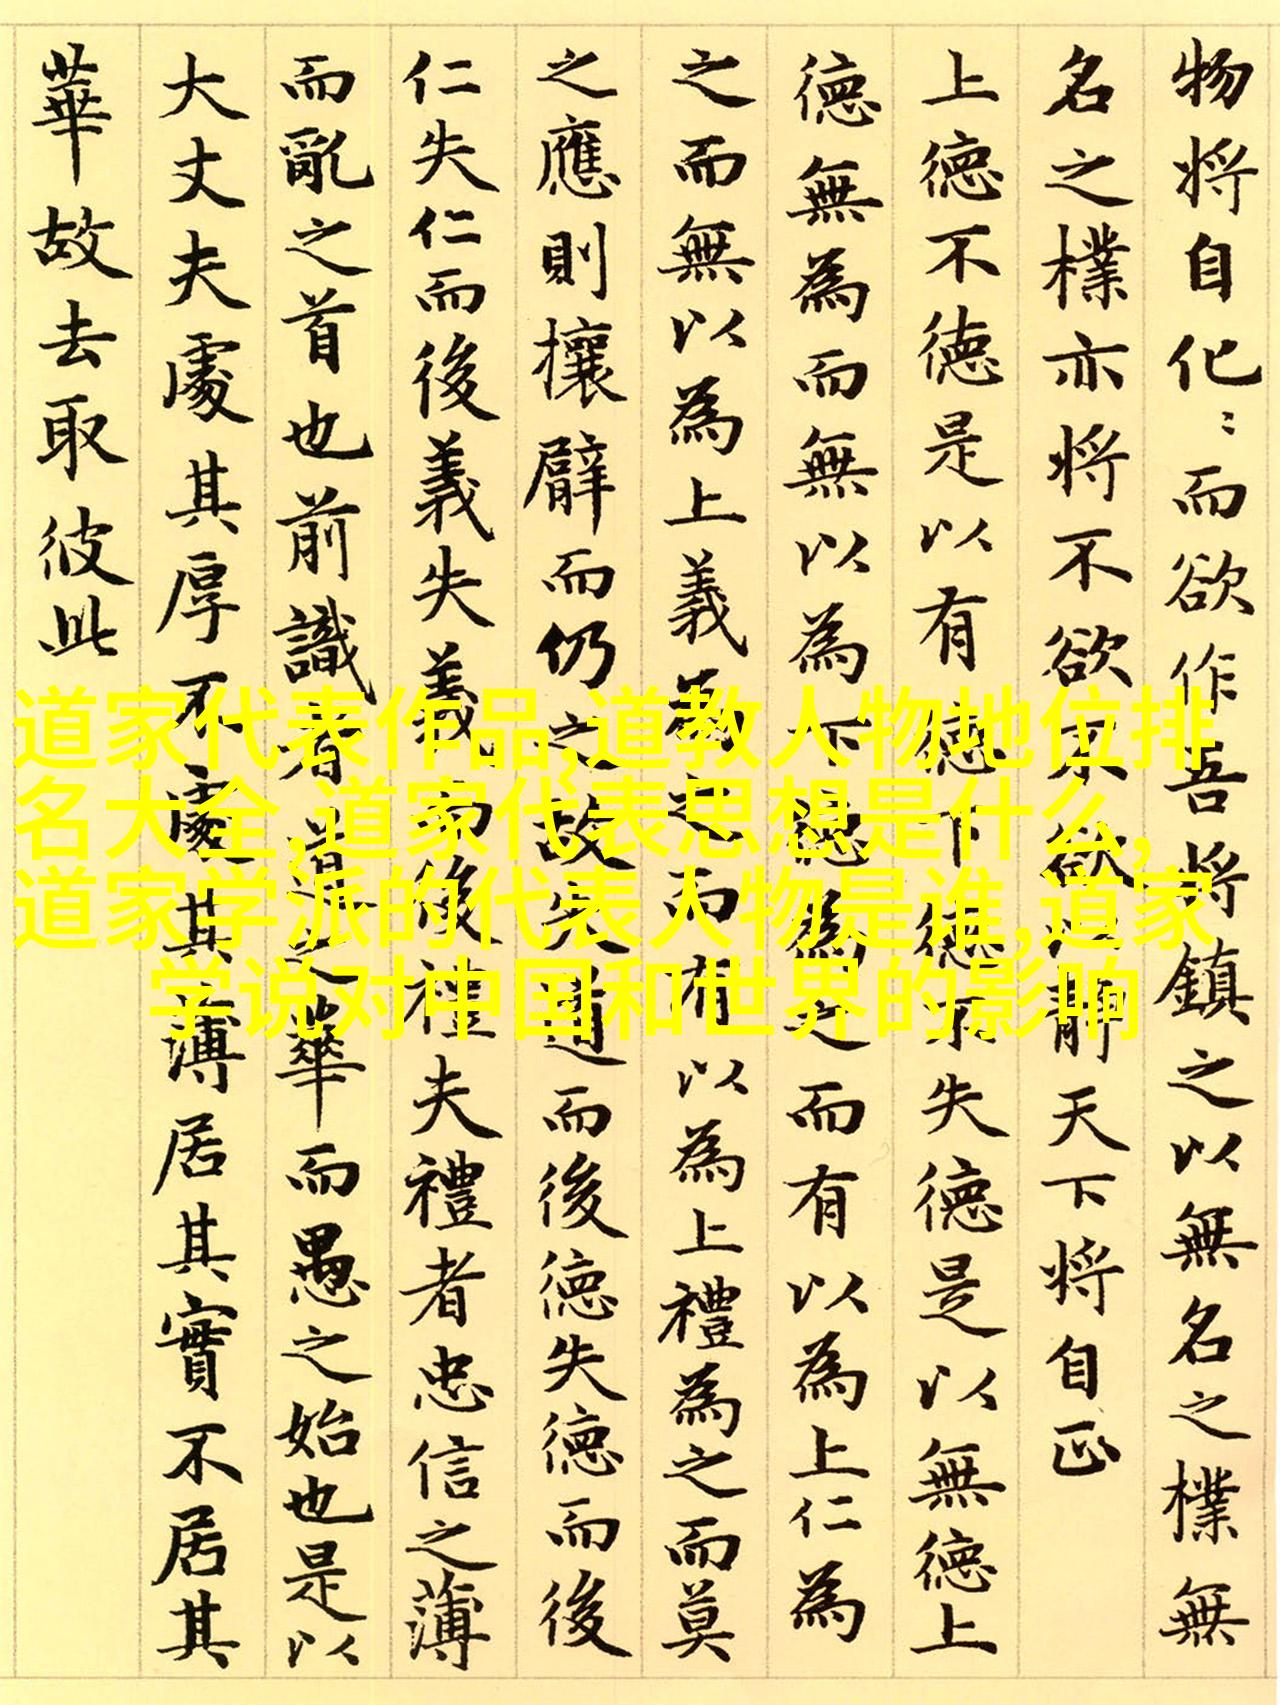 物将自化〻而欲作吾将鎮之以無名之樸無
名之樸亦将不欲不欲以静天下将自正
上德不德是以有德下德不失德是以無德上
德無為而無以為下德為之而有以為上仁為
之而無以為上義為之而有以為上禮為之而莫
之應則攘臂而仍之故失道而後德失德而後
仁失仁而後義失義而後禮夫禮者忠信之薄
而亂之首也前識者道之華而愚之始也是以
大丈夫處其厚不處其薄居其實不居其
華故去取彼此
道家代表作品,道教人物地位排
名大全,道家代表思想是什么,
道家学派的代表人物是谁,道家
学说对中国和世界的影响